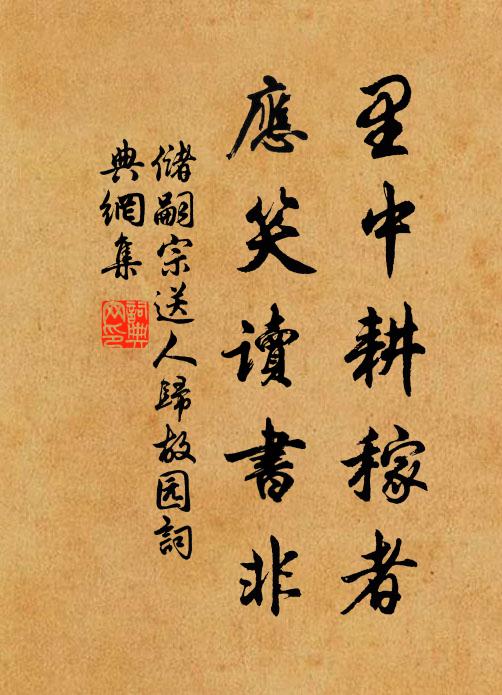 里中耕稼者
應笑讀書非
儲嗣宗送人歸故园詞
典網集
詞典网印